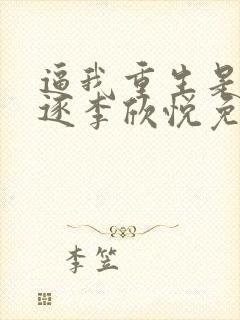 逼我重生是
逐李欣悦免
李笠